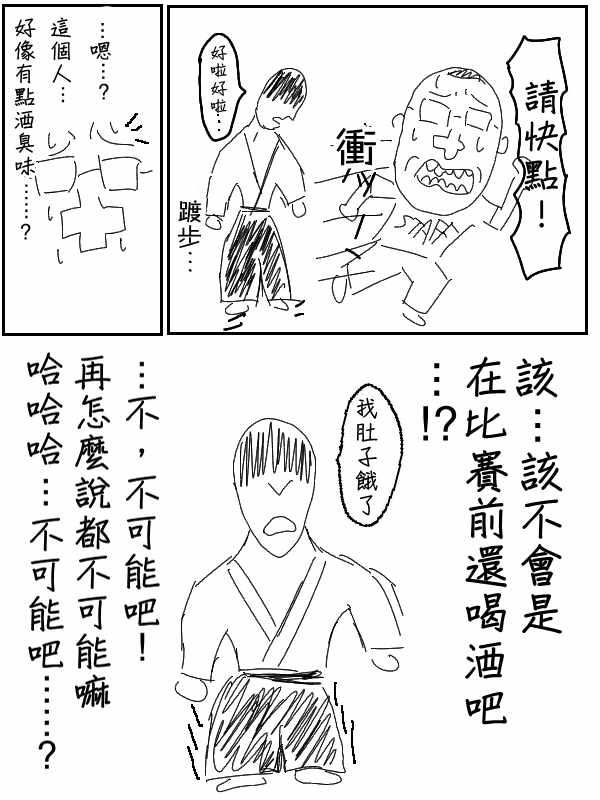 請快點！
STAFF
衝
好啦好啦…
踱步…
…嗯…？
這個人…
好像有點酒臭味……？
該…該不會是
在比賽前還喝酒吧
…!?
我肚子餓了
…不，不可能吧！
再怎麼說都不可能嘛
哈哈哈…不可能吧……？